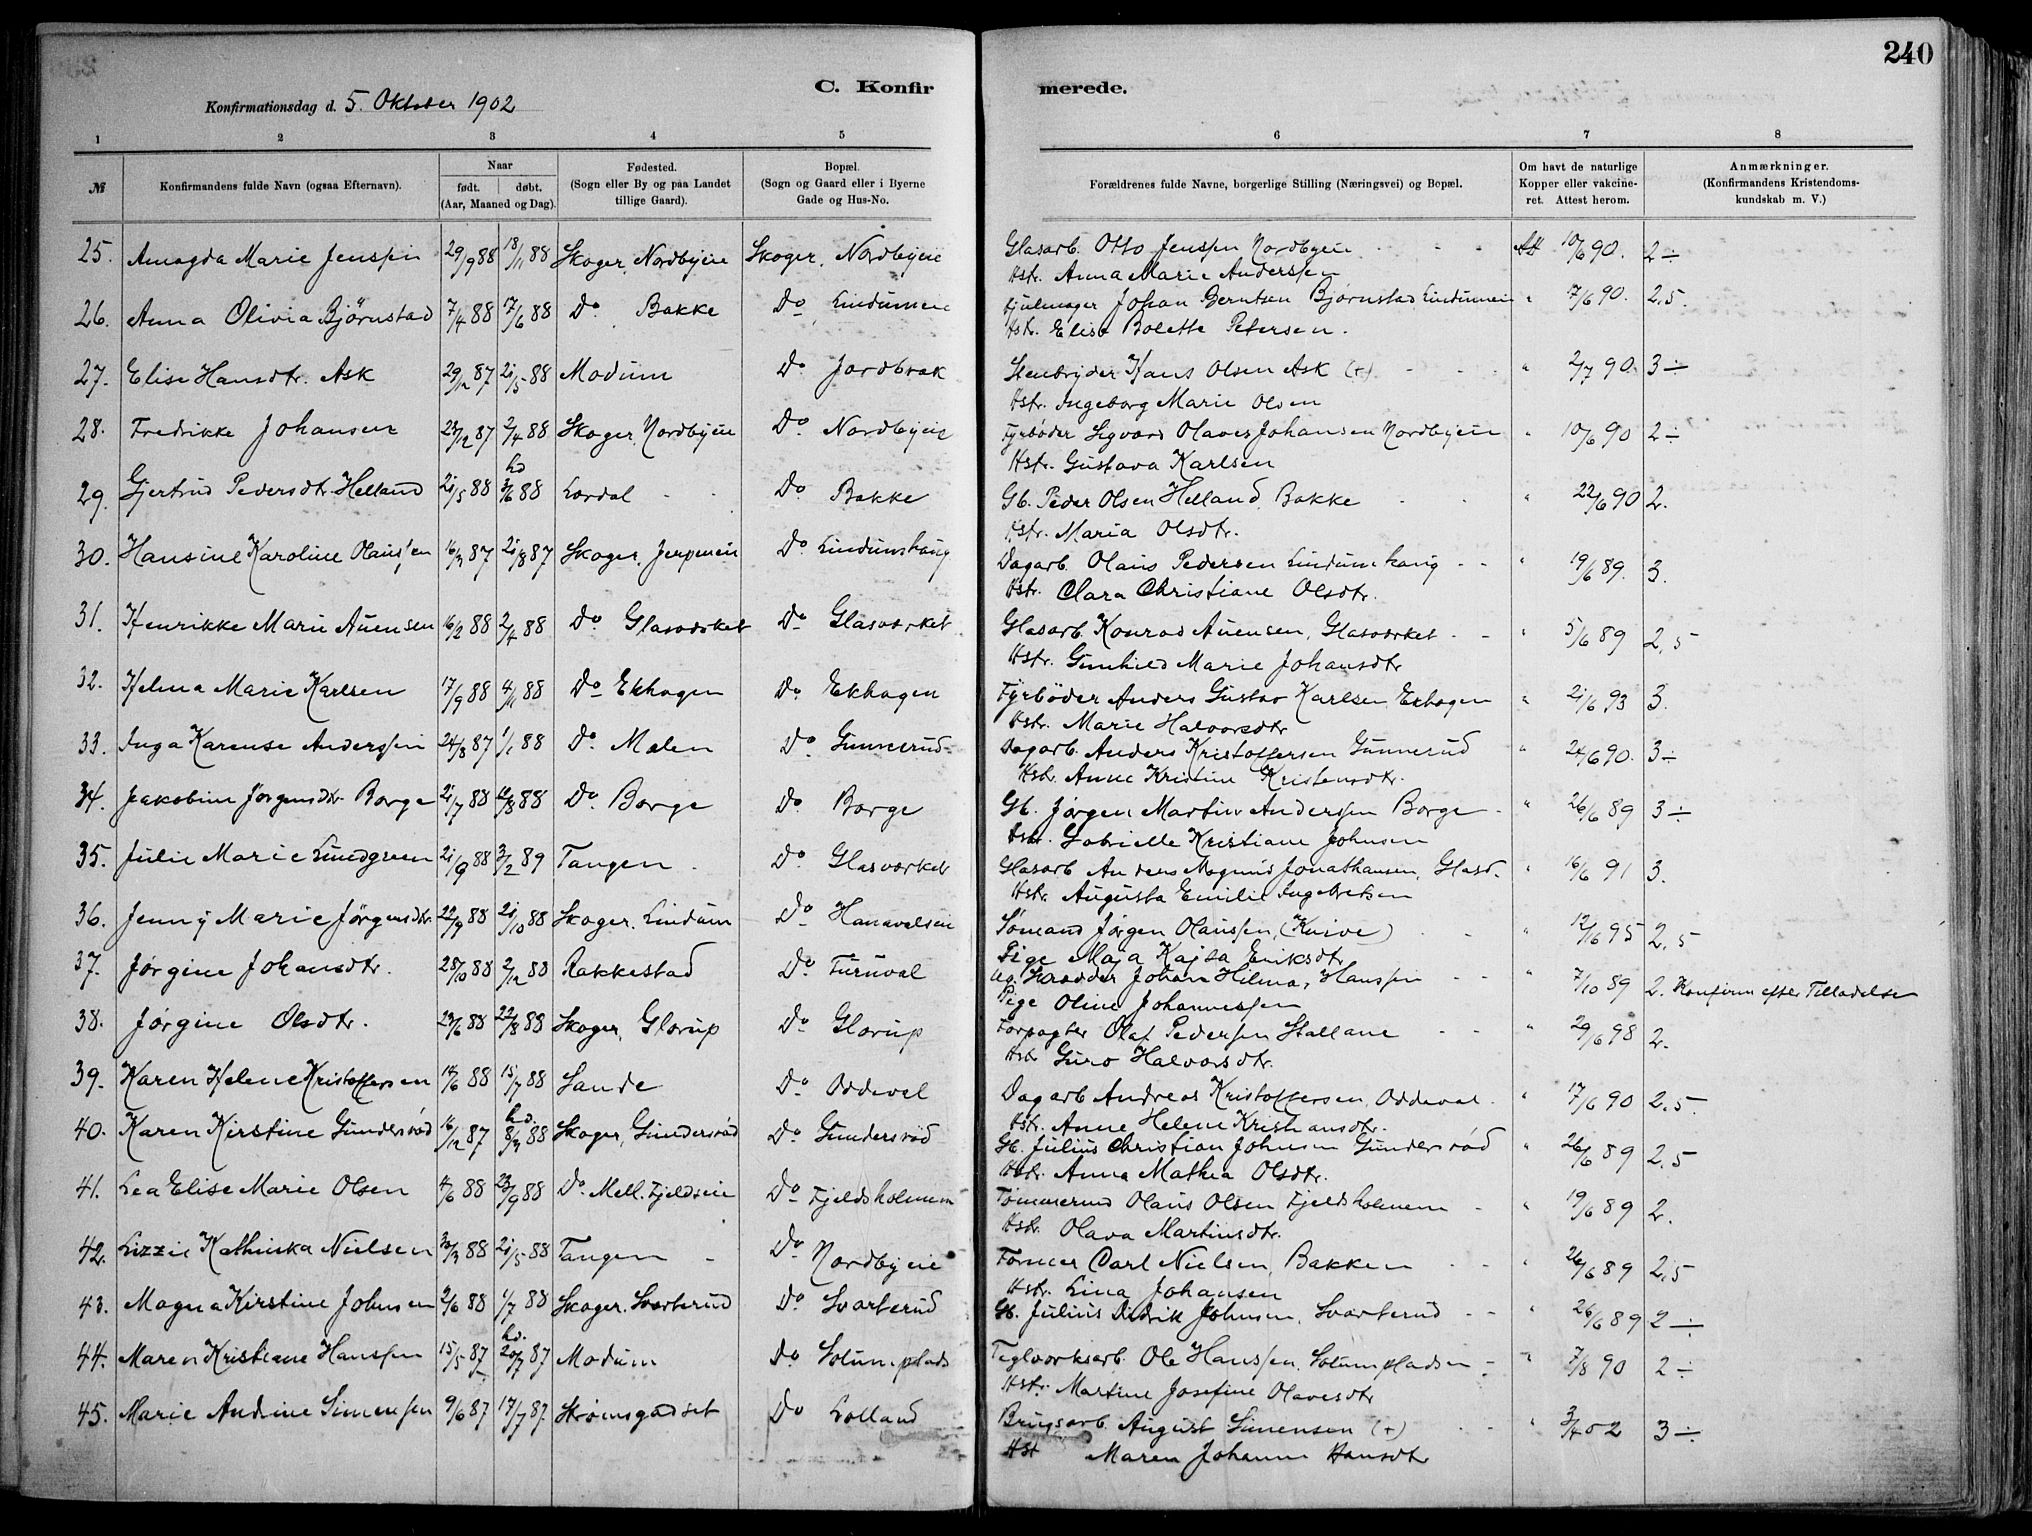 240
C. Konfirmerede.
Konfirmationsdag d. 5. Oktober 1902
1 2 3 4 5 6 7 8
№
Konfirmandens fulde Navn (ogsaa Efternavn).
Naar
født. døbt.
(Aar, Maaned og Dag).
Fødested.
(Sogn eller By og paa Landet
tillige Gaard).
Bopæl.
(Sogn og Gaard eller i Byerne
Gade og Hus-No.
Forældrenes fulde Navne, borgerlige Stilling (Næringsvei) og Bopæl.
Om havt de naturlige
Kopper eller vakcine-
ret. Attest herom.
Anmærkninger.
(Konfirmandens Kristendoms-
kundskab m. V.)
25. Amagda Marie Jenssen 29/9 88 18/11 88 Skoger, Nordbyeie Skoger, Nordbyeie Glasarb. Otto Jenssen Nordbyeie Att 10/6 90. 2 ÷
Hstr. Anna Marie Anderssen
26. Anna Olivia Bjørnstad 7/4 88 17/6 88 Do Bakke Do Lindumeie Hjulmager Johan Berntsen Bjørnstad Lindumeie " 7/6 90. 2,5.
Hstr. Elise Bolette Petersen.
27. Elise Hansdtr. Ask 29/12 87 21/5 88 Modum Do Jordbræk Stenbryder Hans Olsen Ask (+) " 2/7 90. 3 ÷
Hstr. Ingeborg Marie Olsen
28. Fredrikke Johansen 23/12 87 2/4 88 Skoger, Nordbyeie Do Nordbyeie Fyrbøder Sigvard Olaves Johansen Nordbyeie " 10/6 90 2 ÷
Hstr. Gustava Karlsen
29. Gjertrud Pedersdtr. Helland 21/5 88 hd 3/6 88 Lardal Do Bakke Gb. Peder Olsen Helland, Bakke " 22/6 90 2.
Hstr. Maria Olsdtr.
30. Hansine Karoline Olaussen 16/3 87 21/8 87 Skoger, Jerpeneie Do Lindumshaug Dagarb. Olaus Pedersen Lindumshaug " 19/6 89. 3.
Hstr. Clara Christiane Olsdtr.
31. Henrikke Marie Auensen 16/2 88 2/4 88 Do Glasværket Do Glasværket Glasarb. Konrad Auensen, Glasværket " 5/6 89 2,5
Hstr. Gunhild Marie Johansdtr
32. Helma Marie Karlsen 17/9 88 4/11 88 Do Ekhagen Do Ekhagen Fyrbøder Anders Gustav Karlsen Ekhagen " 21/6 93 3.
Hstr. Marie Halvorsdtr
33. Inga Karense Anderssen 24/8 87 1/1 88 Do Mælen Do Gunnerud Dagarb. Anders Kristoffersen Gunnerud " 24/6 90. 3 ÷
Hstr. Anne Kristine Kristensdtr.
34. Jakobine Jørgensdtr. Borge 21/7 88 88 Do Borge Do Borge Gb. Jørgen Martin Anderssen Borge " 26/6 89 3 ÷
Hstr. Gabrielle Kristiane Johnsen
35. Julie Marie Lundgreen 21/9 88 3/2 89 Tangen Do Glasværket Glasarb Anders Magnus Jonathansen, Glasv. " 16/6 91 3.
Hstr. Augusta Emilie Ingebretsen
36. Jenny Marie Jørgensdtr. 22/9 88 21/10 88 Skoger, Lindum Do Hanavalseie Sømand Jørgen Olaussen, (Knive) " 95 2,5
Pige Maja Kajsa Eriksdtr
37. Jørgine Johansdtr. 28/10 88 2/12 88 Rakkestad Do Furuval Johan Hilmar Hanssen " 7/10 89 2. Konfirm. efter Tilladelse
Pige Oline Johannessen
38. Jørgine Olsdtr. 23/6 88 22/8 88 Skoger, Glorup Do Glorup Forpagter Olaf Pedersen Stallane " 29/6 98 2.
Hstr Guro Halvorsdtr.
39. Karen Helene Kristoffersen 88 15/7 88 Sande Do Oddeval Dagarb Andreas Kristoffersen, Oddeval " 17/6 90 2,5.
Hstr. Anne Helene Kristiansdtr.
40. Karen Kirstine Gundersrød 16/12 87 hd. 8/3 88 Skoger, Gundersrød Do Gundersrød Gb. Julius Christian Johnsen Gundersrød " 26/6 89 2,5
Hstr. Anna Mathea Olsdtr.
41. Lea Elise Marie Olsen 4/6 88 23/9 88 Do Mell. Fjeldseie Do Fjeldsholmen Tømmermd Olaus Olsen Fjeldsholmen " 19/6 89 2.
Hstr. Olava Martinsdtr.
42. Lizzie Kathinka Nielsen 30/3 88 21/5 88 Tangen Do Nordbyeie Former Carl Nielsen, Bakken " 26/6 89 2,5
Hstr. Lina Johansen
43. Magna Kirstine Johnsen 2/6 88 1/7 88 Skoger, Svarterud Do Svarterud Gb. Julius Didrik Johnsen, Svarterud " 26/6 89 2 ÷
44. Maren Kristiane Hanssen 15/5 87 hd. 20/7 87 Modum Do Solumplads Teglværksarb. Ole Hanssen, Solumpladsen " 7/8 90 2 ÷
Hstr. Martine Josefine Olavesdtr
45. Marie Andrine Simensen 9/6 87 17/7 87 Strømsgodset Do Lolland Brugsarb. August Simensen (+) " 3/4 02 3 ÷
Hst Maren Johanne Hansdt